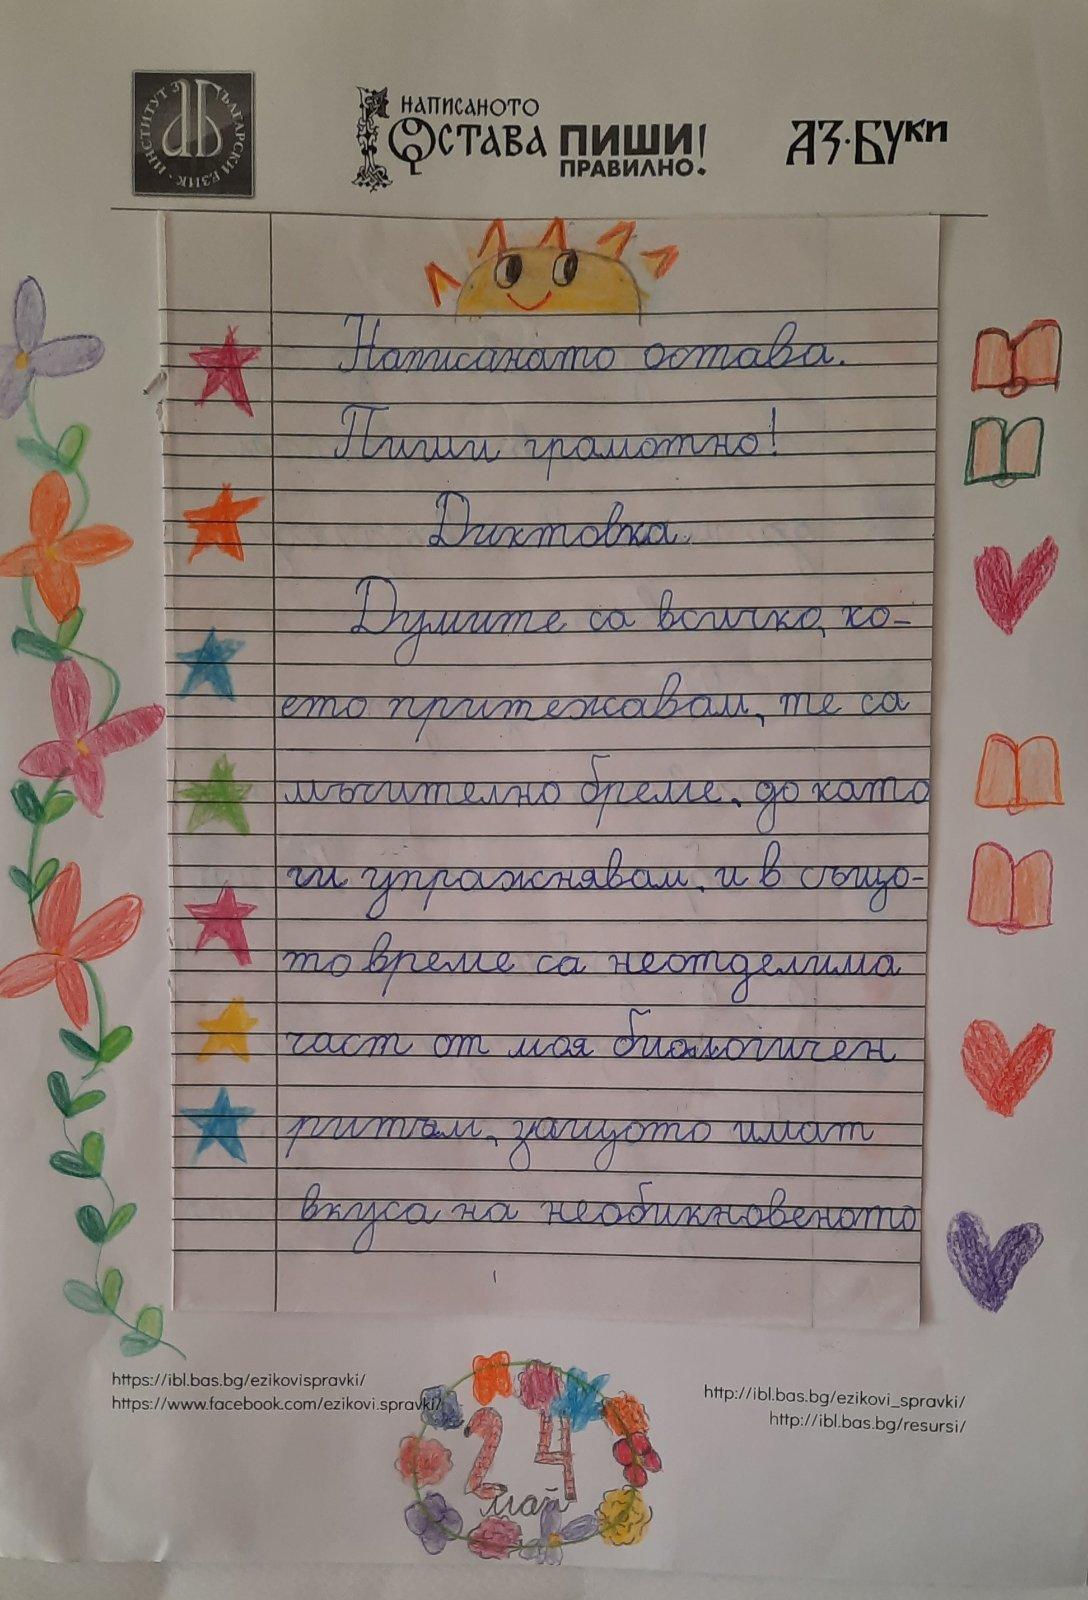 ИНСТИТУТ ЗА БЪЛГАРСКИ ЕЗИК
НАПИСАНОТО
ОСТАВА ПИШИ!
ПРАВИЛНО.
АЗ·БУКИ
Написанато остава.
Пиши грамотно!
Диктовка.
Думите са всичко, ко-
ето притежавам, те са
мъчително бреме, до като
ги упражнявам, и в също-
то време са неотделима
част от моя биологичен
ритъм, защото имат
вкуса на необикновеното
https://ibl.bas.bg/ezikovispravki/
https://www.facebook.com/ezikovi.spravki/
http://ibl.bas.bg/ezikovi_spravki/
http://ibl.bas.bg/resursi/
24
май